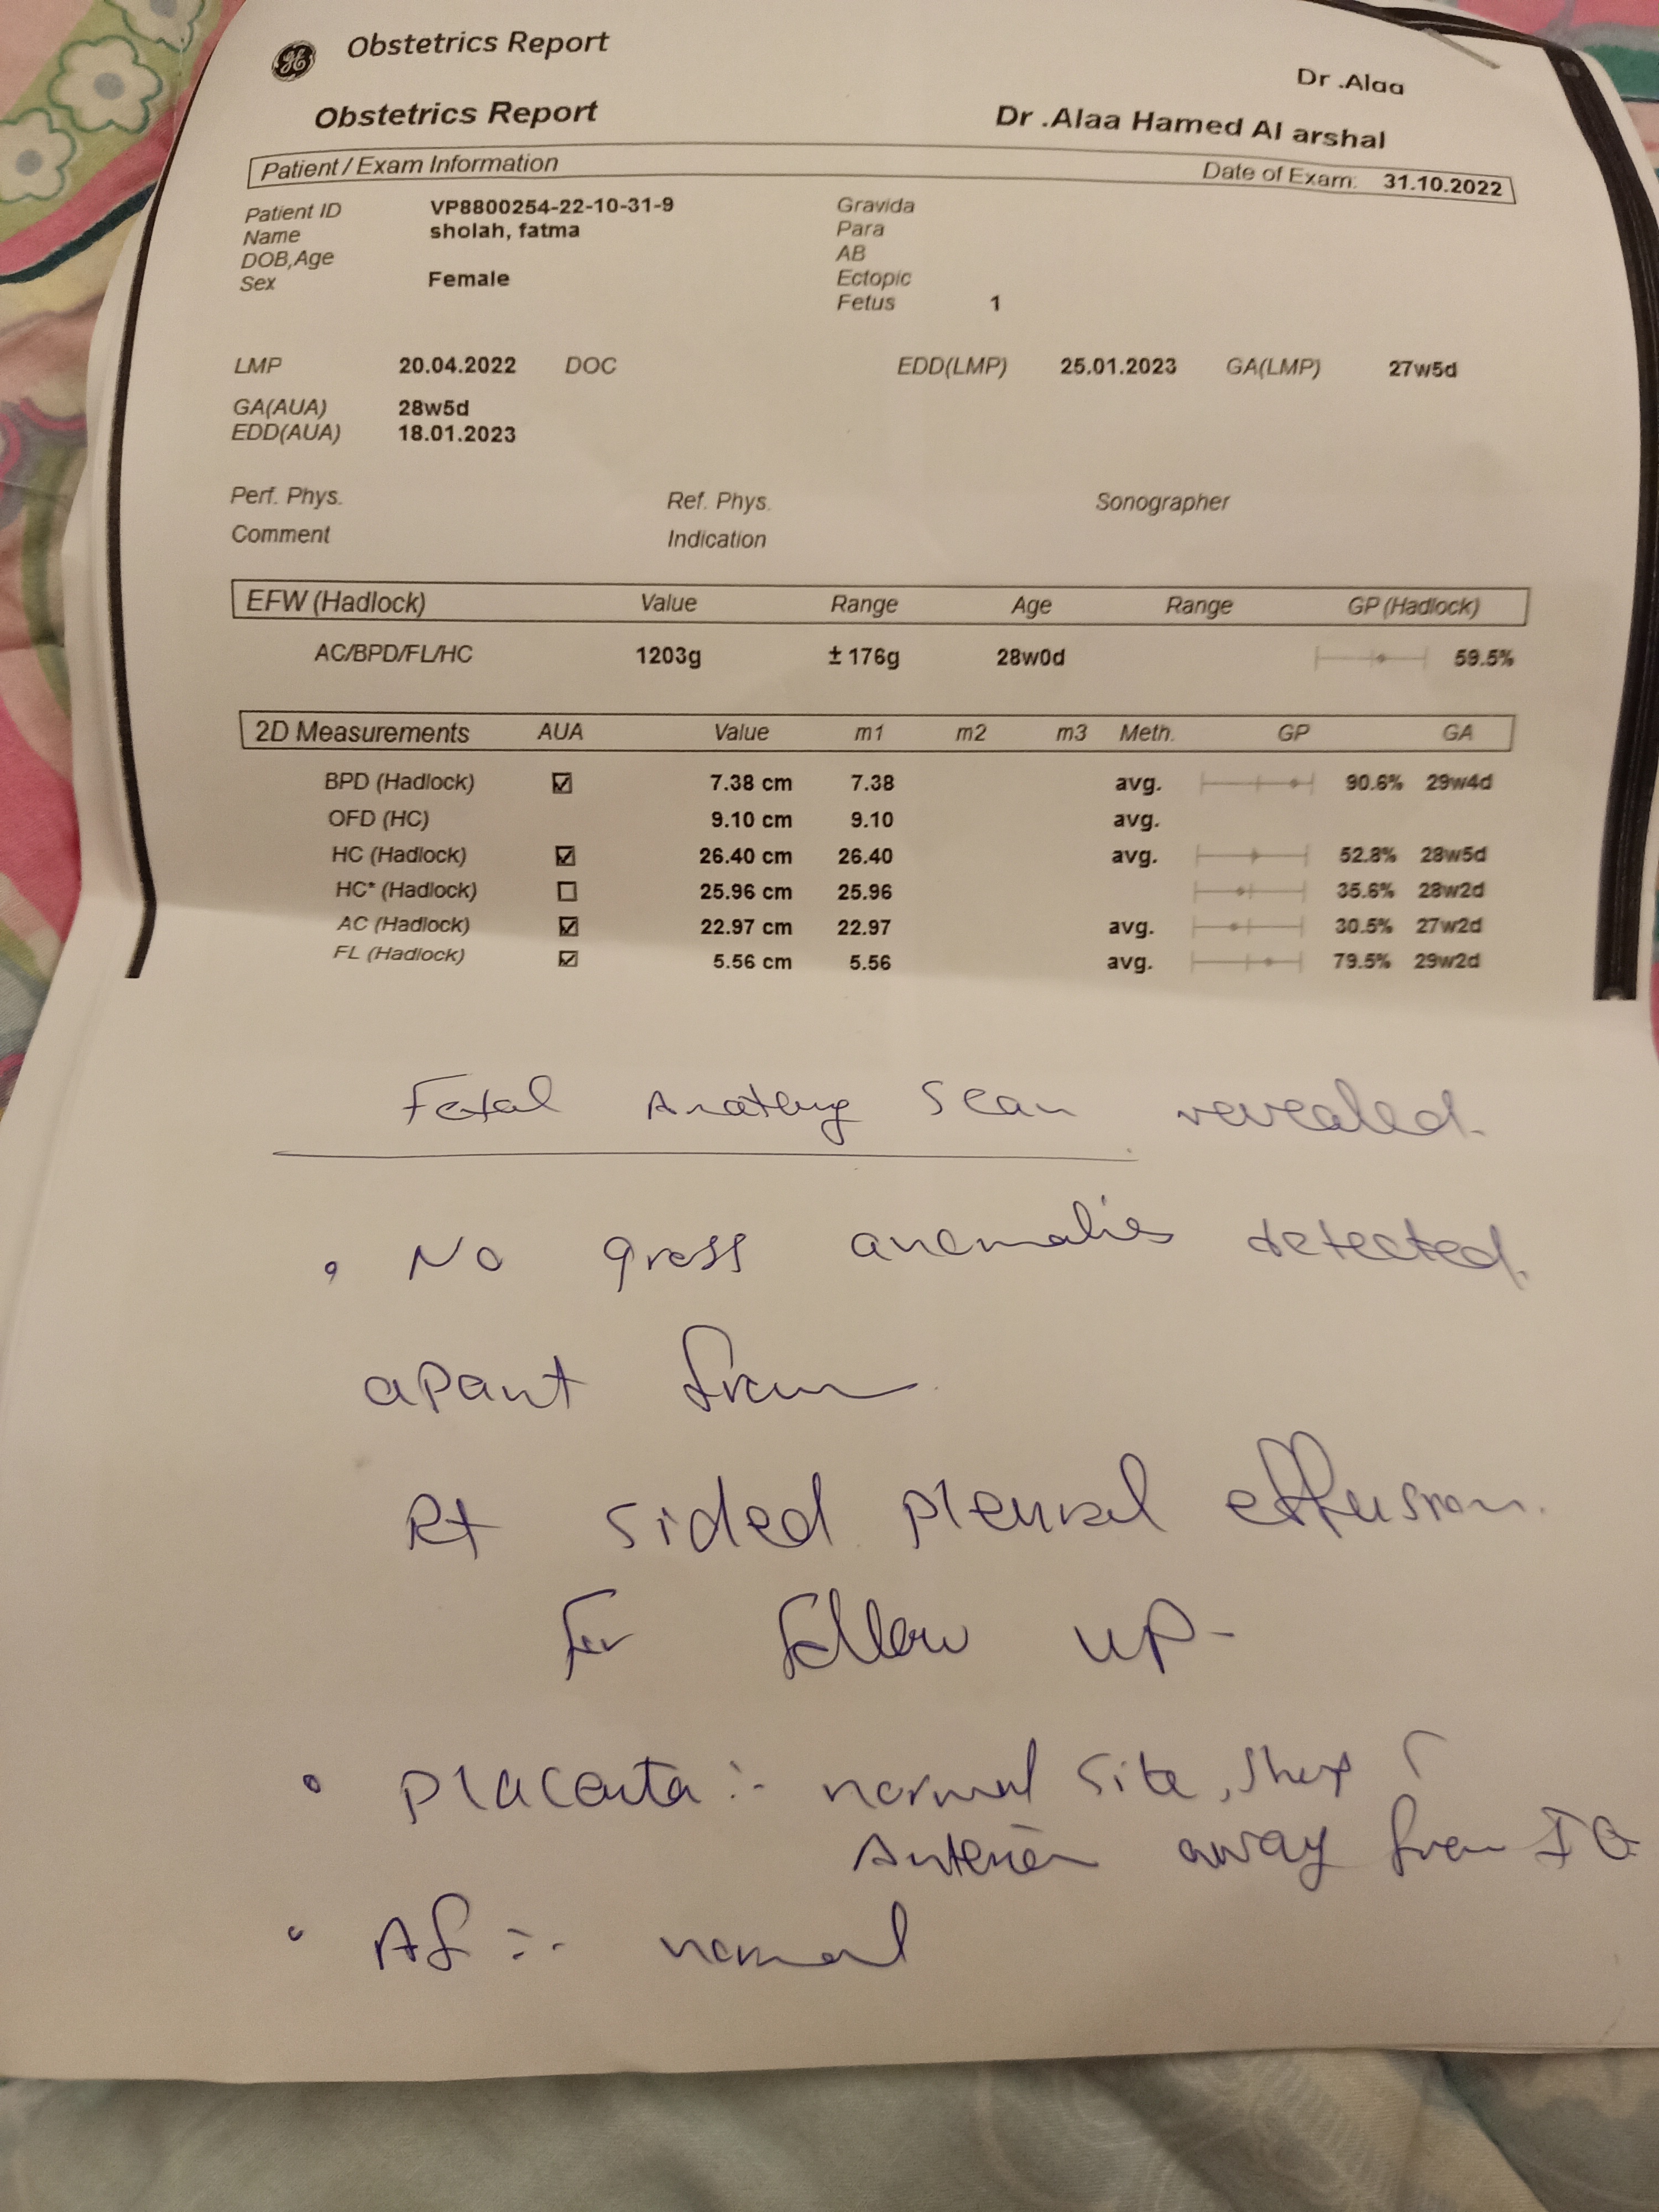 GE Obstetrics Report
Dr .Alaa
Obstetrics Report Dr .Alaa Hamed Al arshal
Patient / Exam Information Date of Exam: 31.10.2022
Patient ID VP8800254-22-10-31-9 Gravida
Name sholah, fatma Para
DOB,Age AB
Sex Female Ectopic
Fetus 1
LMP 20.04.2022 DOC EDD(LMP) 25.01.2023 GA(LMP) 27w5d
GA(AUA) 28w5d
EDD(AUA) 18.01.2023
Perf. Phys. Ref. Phys. Sonographer
Comment Indication
EFW (Hadlock) Value Range Age Range GP (Hadlock)
AC/BPD/FL/HC 1203g ± 176g 28w0d 59.5%
2D Measurements AUA Value m1 m2 m3 Meth. GP GA
BPD (Hadlock) ☑ 7.38 cm 7.38 avg. 90.6% 29w4d
OFD (HC) 9.10 cm 9.10 avg.
HC (Hadlock) ☑ 26.40 cm 26.40 avg. 52.8% 28w5d
HC* (Hadlock) ☐ 25.96 cm 25.96 35.6% 28w2d
AC (Hadlock) ☑ 22.97 cm 22.97 avg. 30.5% 27w2d
FL (Hadlock) ☑ 5.56 cm 5.56 avg. 79.5% 29w2d
Fetal Anatomy Scan revealed.
• No gross anomalies detected.
apart from
Rt sided pleural effusion.
for follow up-
• Placenta :- normal site,
Anterior away from IO
• AF :- normal